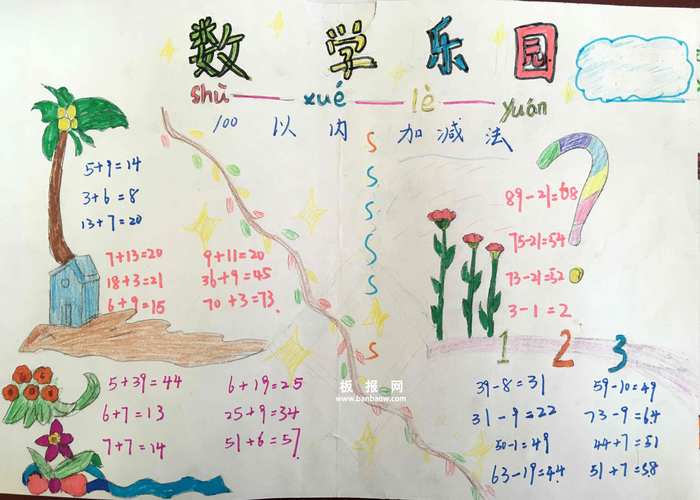 数学乐园
shù xué lè yuán
100 以内加减法
5+9=14
3+6=8
13+7=20
7+13=20
18+3=21
6+9=15
9+11=20
36+9=45
70+3=73
S
S
S
S
S
S
S
89-21=68
75-21=54
73-21=52
3-1=2
1 2 3
5+39=44
6+7=13
7+7=14
6+19=25
25+9=34
51+6=57
板报网
www.banbaow.com
39-8=31
31-9=22
50-1=49
63-19=44
59-10=49
73-9=64
44+7=51
51+7=58